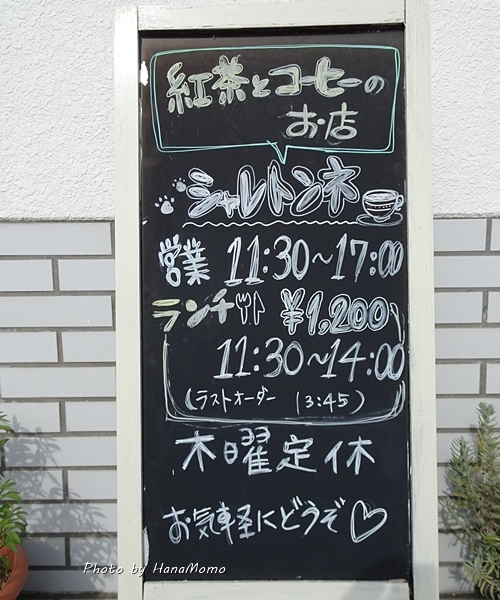 紅茶とコーヒーの
お店
シャレトンネ
営業 11:30~17:00
ランチ ¥1,200
11:30~14:00
(ラストオーダー 13:45)
木曜定休
お気軽にどうぞ♡
Photo by HanaMomo